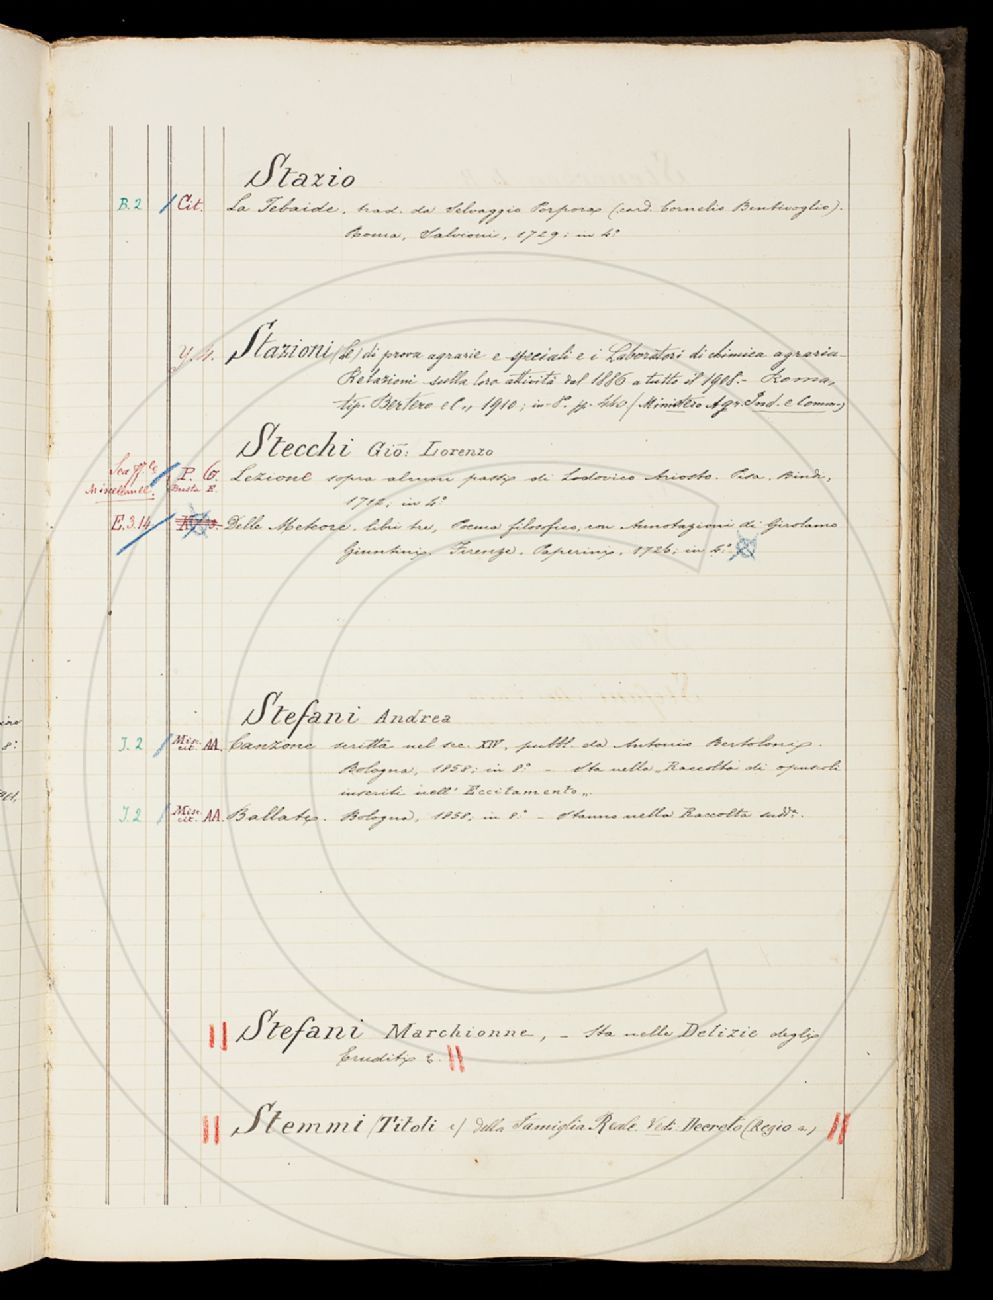 Stazio
B. 2 / Cit. La Tebaide, trad. da Selvaggio Porpora (card. Cornelio Bentivoglio).
Roma, Salvioni, 1729; in 4°
Stazioni (le) di prova agrarie e speciali e i Laboratori di chimica agraria
Relazioni sulla loro attività dal 1886 a tutto il 1908.- Roma,
tip. Bertero e C., 1910; in 8°. pp. 440 (Ministero Agr. Ind. e Comm.)
Stecchi Giō: Lorenzo
Miscellanee. P. G. Busta E. Lezione sopra alcuni passi di Lodovico Ariosto. Pisa, Bindi,
1712, in 4°
E. 3. 14 Delle Meteore, libri tre, Poema filosofico, con Annotazioni di Girolamo
Giuntini. Firenze, Paperini, 1726; in 4°.
Stefani Andrea
J. 2 / Misc. cit. AA. Canzone scritta nel sec. XIV, pubb. da Antonio Bertoloni.
Bologna, 1858; in 8° - Sta nella Raccolta di opuscoli
inseriti nell' Eccitamento„.
J. 2 / Misc. cit. AA. Ballate. Bologna, 1858, in 8° - Stanno nella Raccolta sudd.ª.
Stefani Marchionne, - Sta nelle Delizie degli
Eruditi &.
Stemmi (Titoli e) della Famiglia Reale Vedi Decreto (Regio